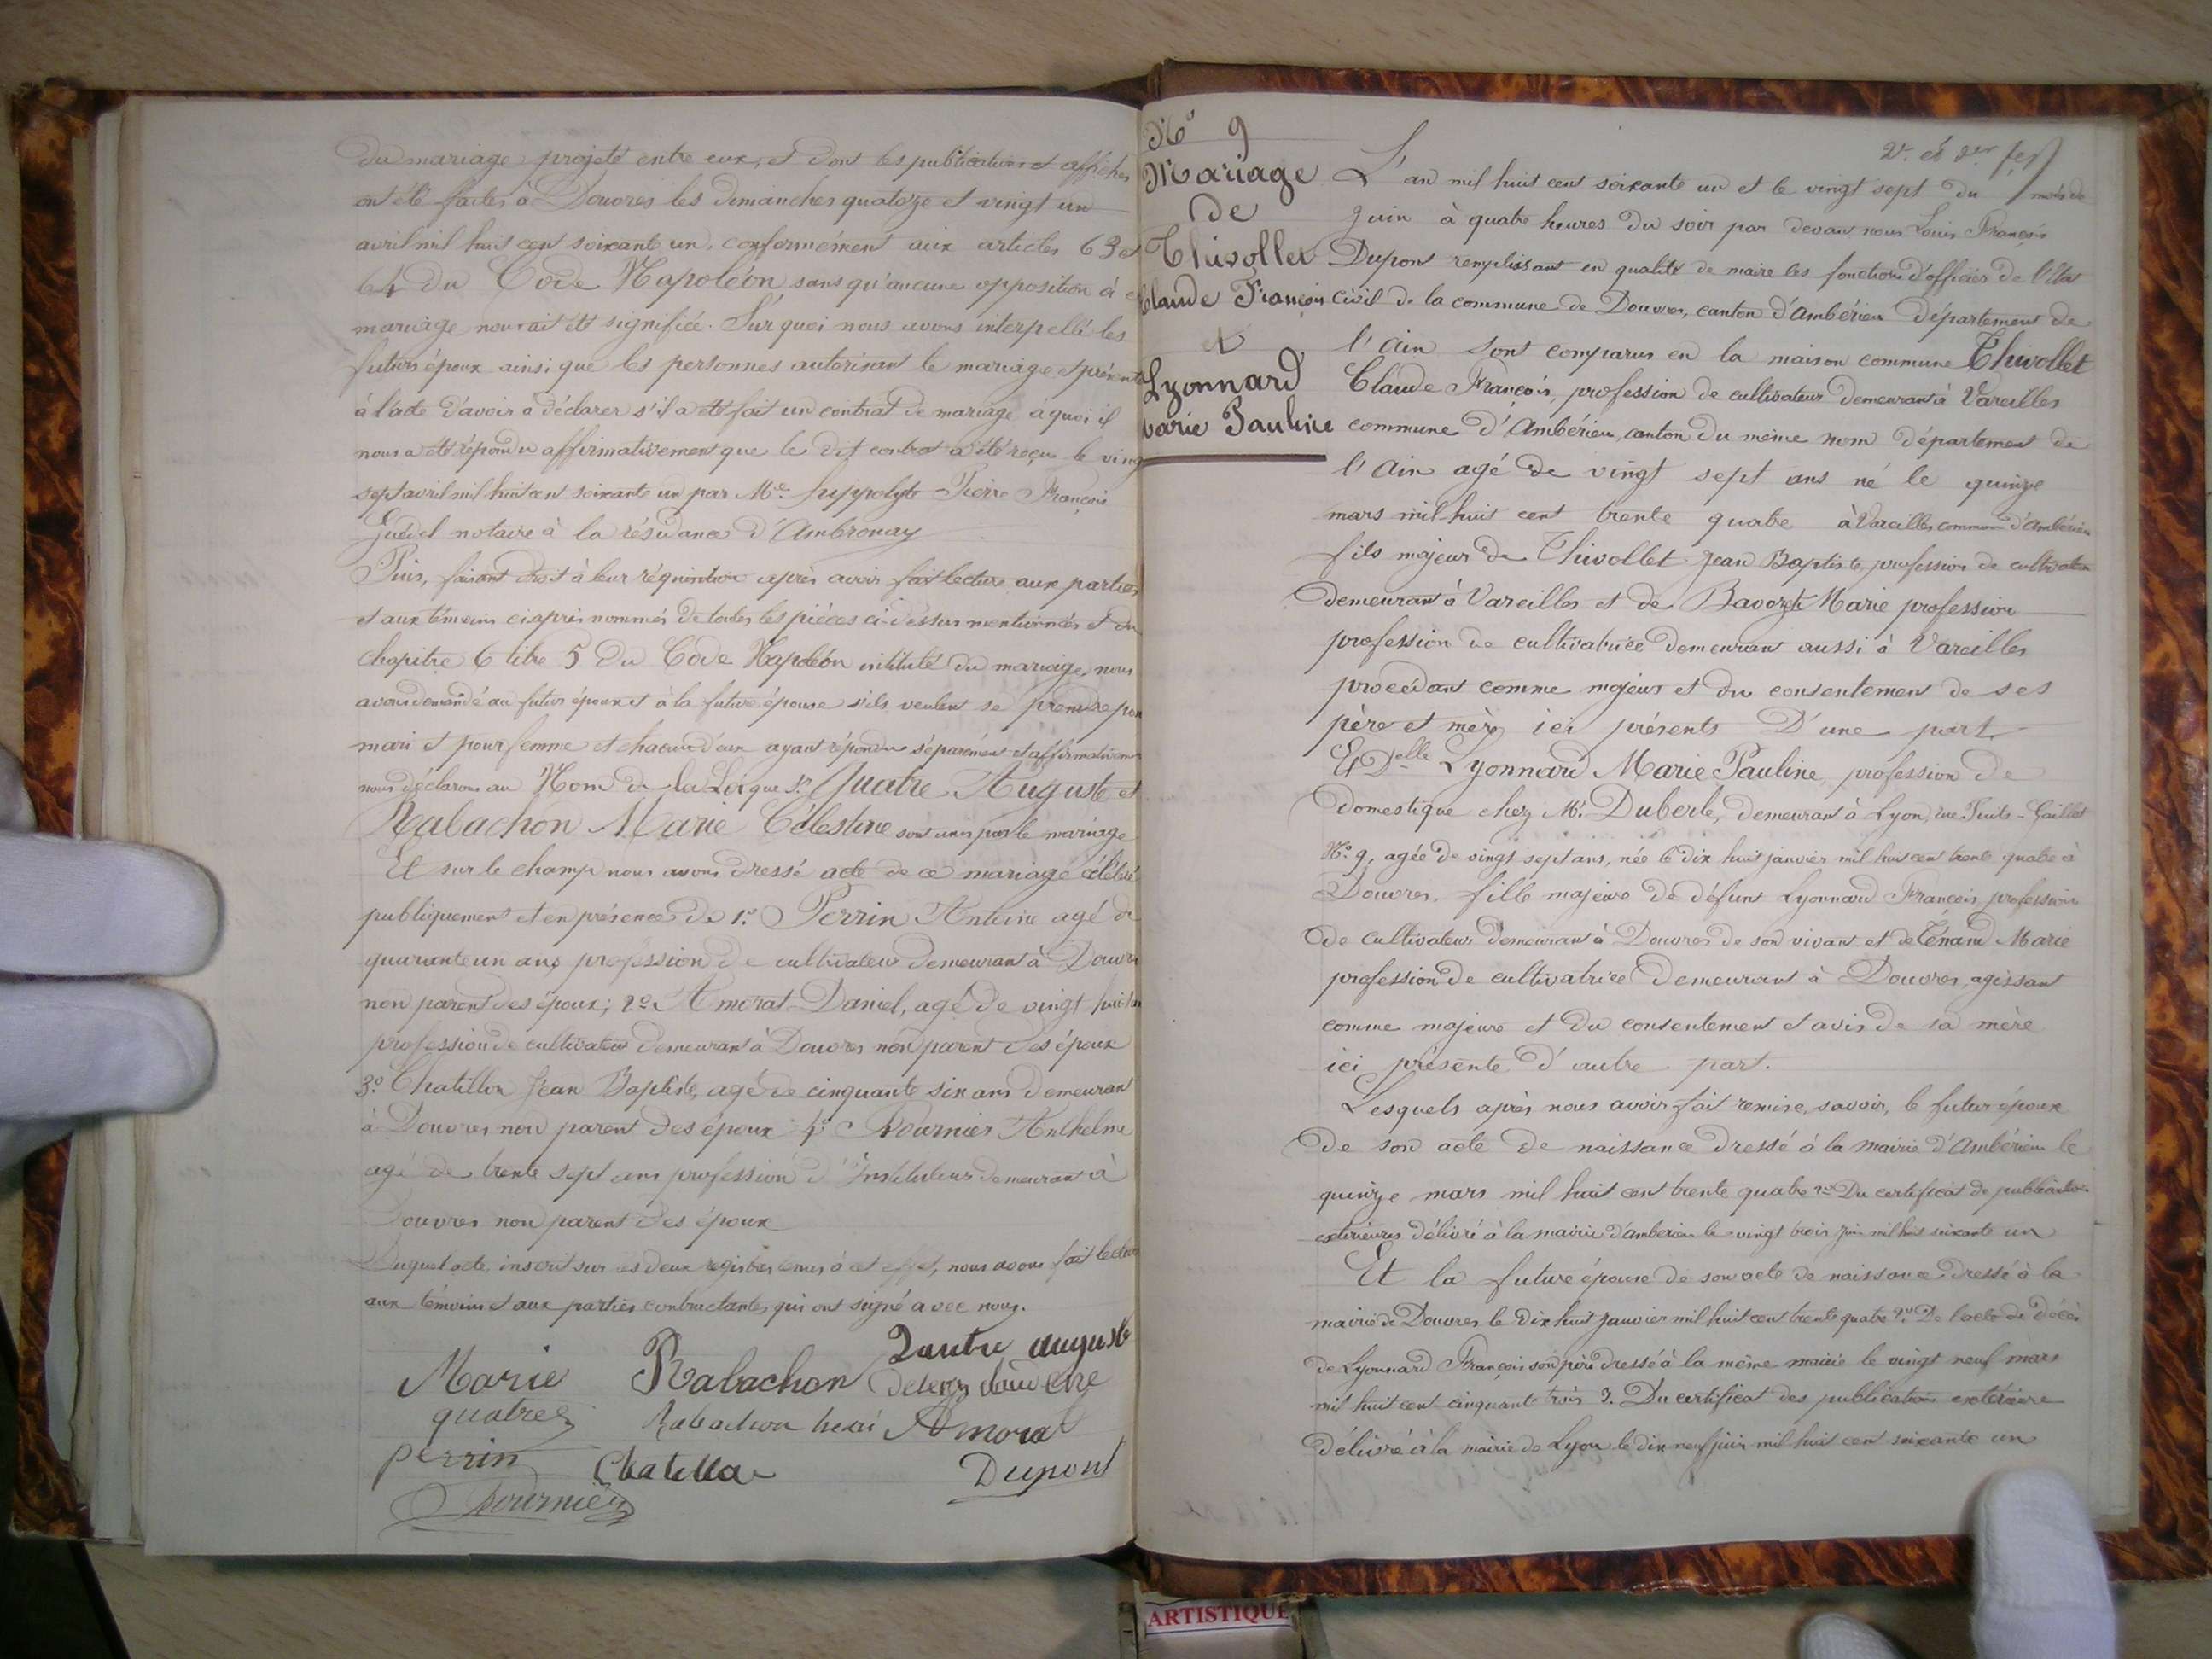 du mariage projeté entre eux, et dont les publications et affiches
ont été faites à Douvres les dimanches quatorze et vingt un
avril mil huit cent soixante un, conformément aux articles 63 et
64 du Code Napoléon sans qu'aucune opposition à
mariage nous ait été signifiée. Sur quoi nous avons interpellé les
futurs époux ainsi que les personnes autorisant le mariage et présentes
à l'acte d'avoir à déclarer s'il a été fait un contrat de mariage à quoi il
nous a été répondu affirmativement que le dit contrat a été reçu le vingt
sept avril mil huit cent soixante un par Me. hyppolyte Pierre François
notaire à la résidance d'Ambronay
Puis, faisant droit à leur réquisition après avoir fait lecture aux parties
et aux témoins ci-après nommés de toutes les pièces ci-dessus mentionnées et du
chapitre 6 titre 5 du Code Napoléon intitulé du mariage, nous
avons demandé au futur époux et à la future épouse s'ils veulent se prendre pour
mari et pour femme et chacun d'eux ayant répondu séparément et affirmativem
nous déclarons au Nom de la Loi que Sr. Quatre Auguste et
Rabachon Marie Célestine sont unis par le mariage
Et sur le champ nous avons dressé acte de ce mariage célébré
publiquement et en présence de 1.° Perrin Antoine agé de
quarante un ans profession de cultivateur demeurant à Douvres
non parent des époux; 2° Amorat Daniel, agé de vingt huit an
profession de cultivateur demeurant à Douvres non parent des époux
3.° Chatillon Jean Baptiste, agé de cinquante six ans demeurant
à Douvres non parent des époux 4° Fournier Anthelme
agé de trente sept ans profession d'Instituteur demeurant à
Douvres non parent des époux
Duquel acte, inscrit sur les deux registres tenus à cet effet, nous avons fait lecture
aux témoins et aux parties contractantes qui ont signé avec nous.
Marie Rabachon Quatre auguste
quatre Rabachon Amorat
perrin Chatillon Dupont
Fournier
N° 9
Mariage
de
Thivollet
Claude François
et
Lyonnard
Marie Pauline
L'an mil huit cent soixante un et le vingt sept du mois de
Juin à quatre heures du soir par devant nous Louis François
Dupont remplissant en qualité de maire les fonctions d'officier de l'état
civil de la commune de Douvres, canton d'Ambérieu département de
l'Ain sont comparus en la maison commune Thivollet
Claude François, profession de cultivateur demeurant à Vareilles
commune d'Ambérieu, canton du même nom département de
l'Ain agé de vingt sept ans né le quinze
mars mil huit cent trente quatre à Vareilles commune d'Ambérieu
fils majeur de Thivollet Jean Baptiste, profession de cultivateur
demeurant à Vareilles et de Bavozet Marie profession
profession de cultivatrice demeurant aussi à Vareilles
procédant comme majeur et du consentement de ses
père et mère ici présents D'une part.
Et Delle Lyonnard Marie Pauline, profession de
domestique chez Mr. Duberle, demeurant à Lyon, rue Puits-Gaillot
N°. 9, agée de vingt sept ans, née le dix huit janvier mil huit cent trente quatre à
Douvres. fille majeure de défunt Lyonnard François profession
de cultivateur demeurant à Douvres de son vivant et de Tenand Marie
profession de cultivatrice demeurant à Douvres, agissant
comme majeure et du consentement et avis de sa mère
ici présente d'autre part.
Lesquels après nous avoir fait remise, savoir, le futur époux
de son acte de naissance dressé à la mairie d'Ambérieu le
quinze mars mil huit cent trente quatre 2° Du certificat de publications
extérieures délivré à la mairie d'ambérieu le vingt trois juin mil huit soixante un
Et la future épouse de son acte de naissance dressé à la
mairie de Douvres le dix huit janvier mil huit cent trente quatre 2° De l'acte de décès
de Lyonnard François son père dressé à la même mairie le vingt neuf mars
mil huit cent cinquante trois 3. Du certificat des publications extérieure
délivré à la mairie de Lyon le dix neuf juin mil huit cent soixante un
ARTISTIQUE